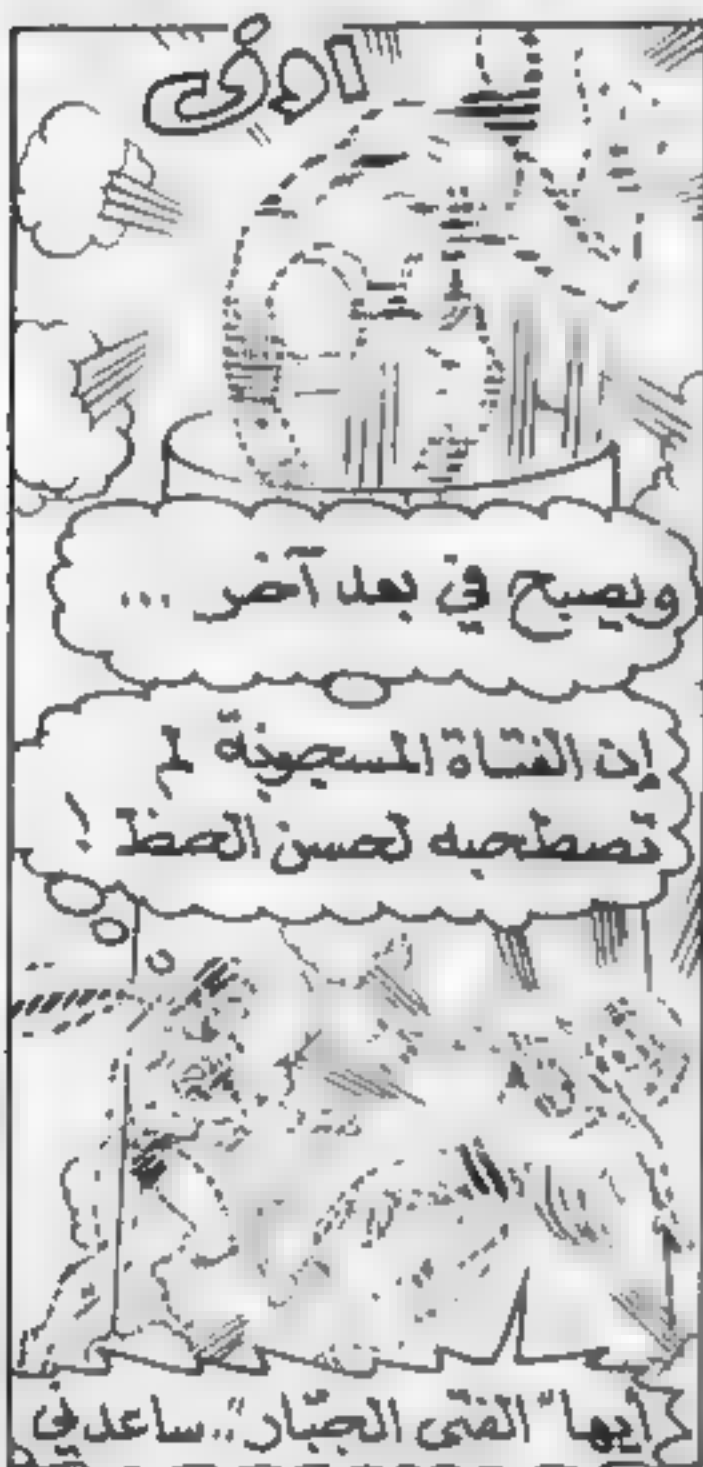 ويصبح في بعد آخر ...
إن الفتاة المسجونة لم
تصطحبه لحسن الحظ !
أيها "الفتى الجبّار".. ساعدني